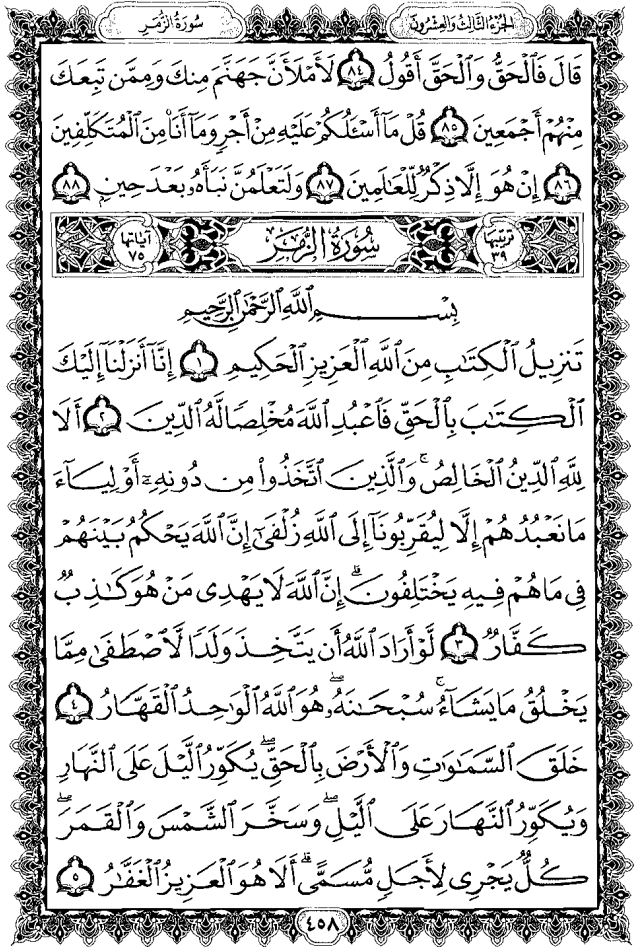 الجزء الثالث والعشرون
سورة الزمر
قَالَ فَالْحَقُّ وَالْحَقَّ أَقُولُ ٨٤ لَأَمْلَأَنَّ جَهَنَّمَ مِنكَ وَمِمَّن تَبِعَكَ
مِنْهُمْ أَجْمَعِينَ ٨٥ قُلْ مَا أَسْـَٔلُكُمْ عَلَيْهِ مِنْ أَجْرٍ وَمَا أَنَا مِنَ الْمُتَكَلِّفِينَ
٨٦ إِنْ هُوَ إِلَّا ذِكْرٌ لِّلْعَالَمِينَ ٨٧ وَلَتَعْلَمُنَّ نَبَأَهُ بَعْدَ حِينٍ ٨٨
ترتيبها ٣٩ سُورَةُ الزُّمَرِ آياتها ٧٥
بِسْمِ اللَّهِ الرَّحْمَٰنِ الرَّحِيمِ
تَنزِيلُ الْكِتَابِ مِنَ اللَّهِ الْعَزِيزِ الْحَكِيمِ ١ إِنَّا أَنزَلْنَا إِلَيْكَ
الْكِتَابَ بِالْحَقِّ فَاعْبُدِ اللَّهَ مُخْلِصًا لَّهُ الدِّينَ ٢ أَلَا
لِلَّهِ الدِّينُ الْخَالِصُ ۚ وَالَّذِينَ اتَّخَذُوا مِن دُونِهِ أَوْلِيَاءَ
مَا نَعْبُدُهُمْ إِلَّا لِيُقَرِّبُونَا إِلَى اللَّهِ زُلْفَىٰ إِنَّ اللَّهَ يَحْكُمُ بَيْنَهُمْ
فِي مَا هُمْ فِيهِ يَخْتَلِفُونَ ۗ إِنَّ اللَّهَ لَا يَهْدِي مَنْ هُوَ كَاذِبٌ
كَفَّارٌ ٣ لَّوْ أَرَادَ اللَّهُ أَن يَتَّخِذَ وَلَدًا لَّاصْطَفَىٰ مِمَّا
يَخْلُقُ مَا يَشَاءُ ۚ سُبْحَانَهُ ۖ هُوَ اللَّهُ الْوَاحِدُ الْقَهَّارُ ٤
خَلَقَ السَّمَاوَاتِ وَالْأَرْضَ بِالْحَقِّ ۖ يُكَوِّرُ اللَّيْلَ عَلَى النَّهَارِ
وَيُكَوِّرُ النَّهَارَ عَلَى اللَّيْلِ ۖ وَسَخَّرَ الشَّمْسَ وَالْقَمَرَ ۖ
كُلٌّ يَجْرِي لِأَجَلٍ مُّسَمًّى ۗ أَلَا هُوَ الْعَزِيزُ الْغَفَّارُ ٥
٤٥٨